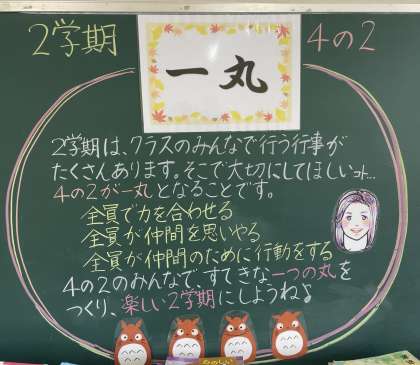 2学期
一丸
4の2
2学期は、クラスのみんなで行う行事が
たくさんあります。そこで大切にしてほしいコト…
4の2が一丸となることです。
全員で力を合わせる
全員が仲間を思いやる
全員が仲間のために行動をする
4の2のみんなですてきな一つの丸を
つくり、楽しい2学期にしようね♪